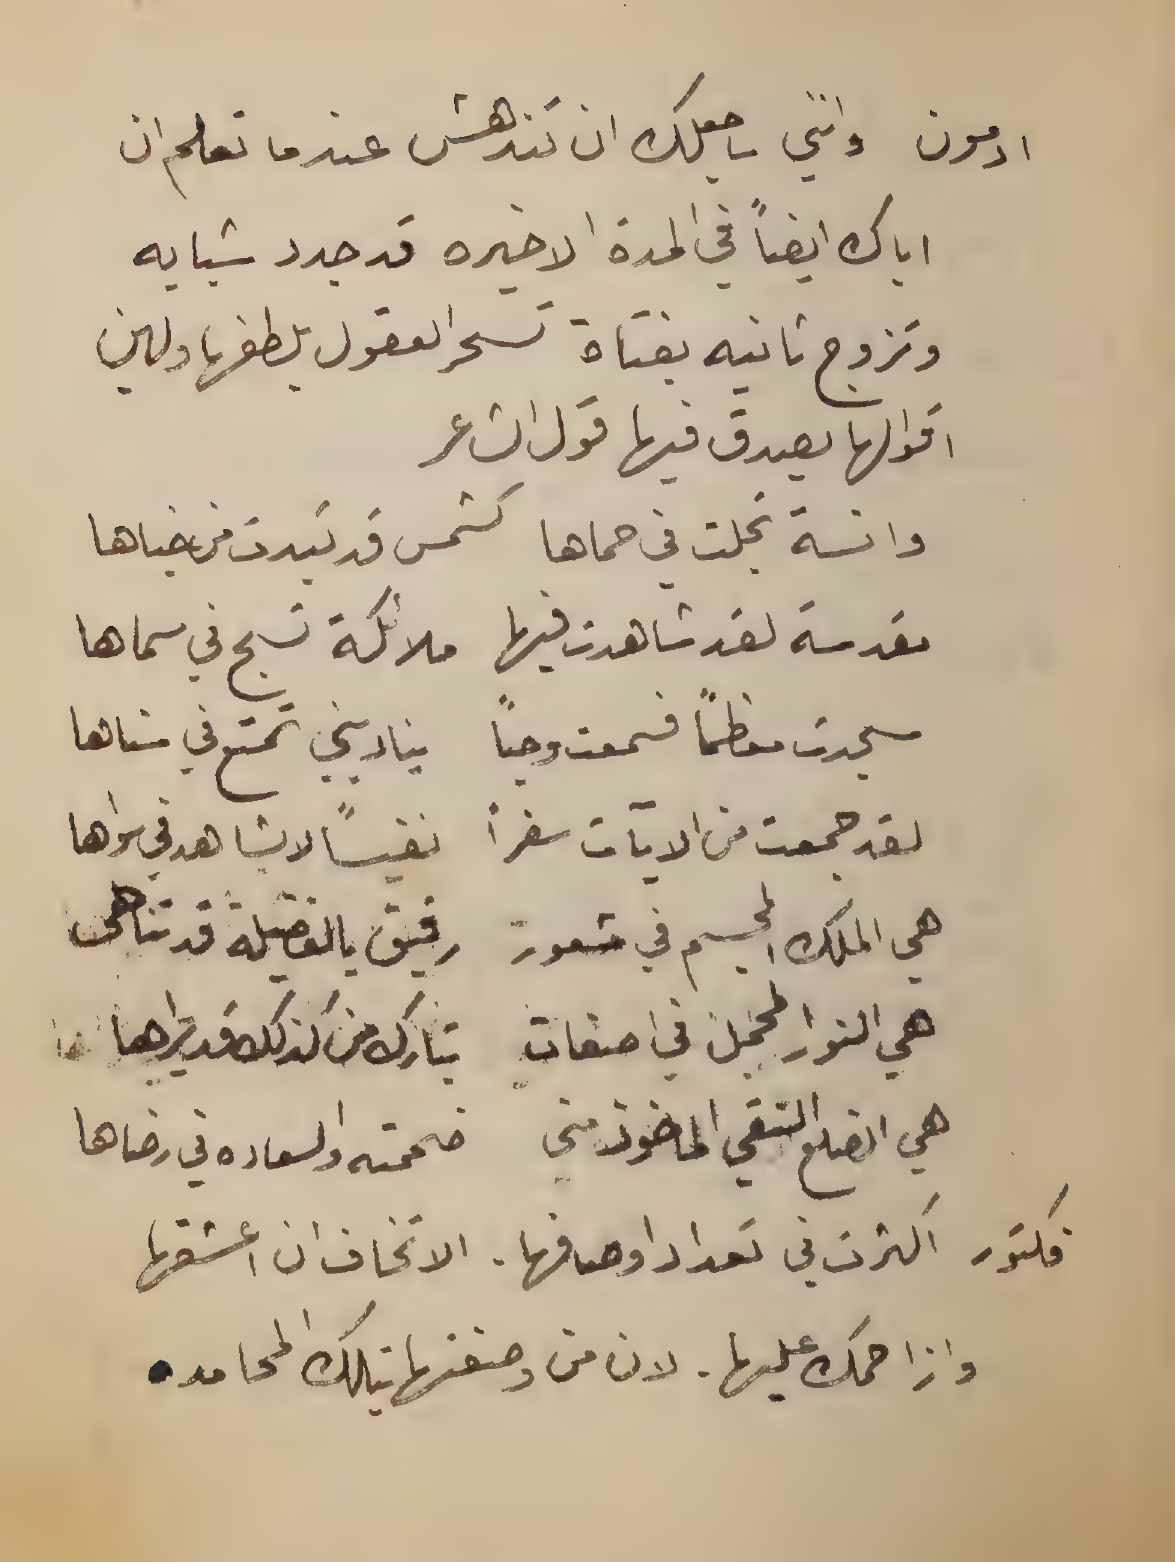 ادمون وانني ساجعلك ان تندهش عندما تعلم ان
اباك ايضاً في المدة الاخيره قد جدد شبابه
وتزوج ثانيه بفتاة تسحر العقول بلطفها ولين
اقوالها يصدق فيها قول الشاعر
وانسة تجلت في حماها كشمس قد تبدت من خباها
مقدسة لقد شاهدت فيها ملائكة تسبح في سماها
سجدت معظماً فسمعت وحياً يناديني تمتع في سناها
لقد جمعت من الايآت سفراً نفيساً لا يشاهد في سواها
هي الملك المجسم في شعور رقيق بالفضيلة قد تناهى
هي النور المجمل في صفات تبارك من كذلك قد براها
هي الضلع النقي الماخوذ مني ضممته والسعاده في رضاها
فكتور اكثرت في تعداد اوصافها. الا تخاف ان اعشقها
وازاحمك عليها. لان من وصفتها بتلك المحامد